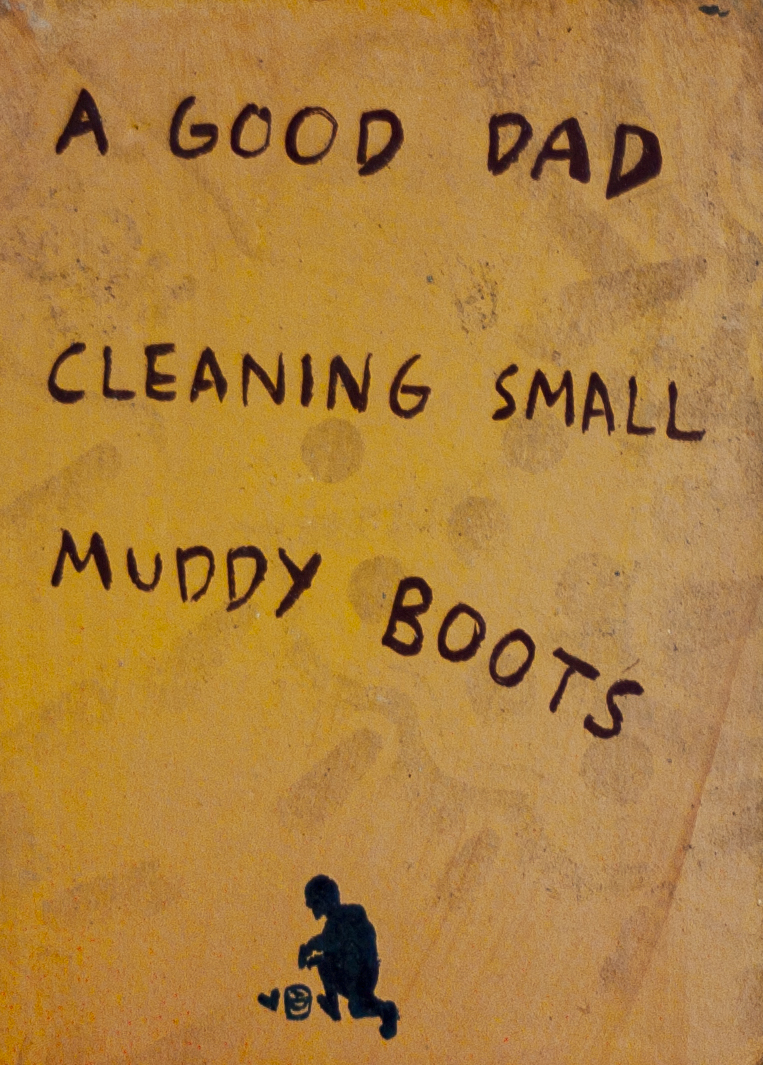 A GOOD DAD
CLEANING SMALL
MUDDY BOOTS